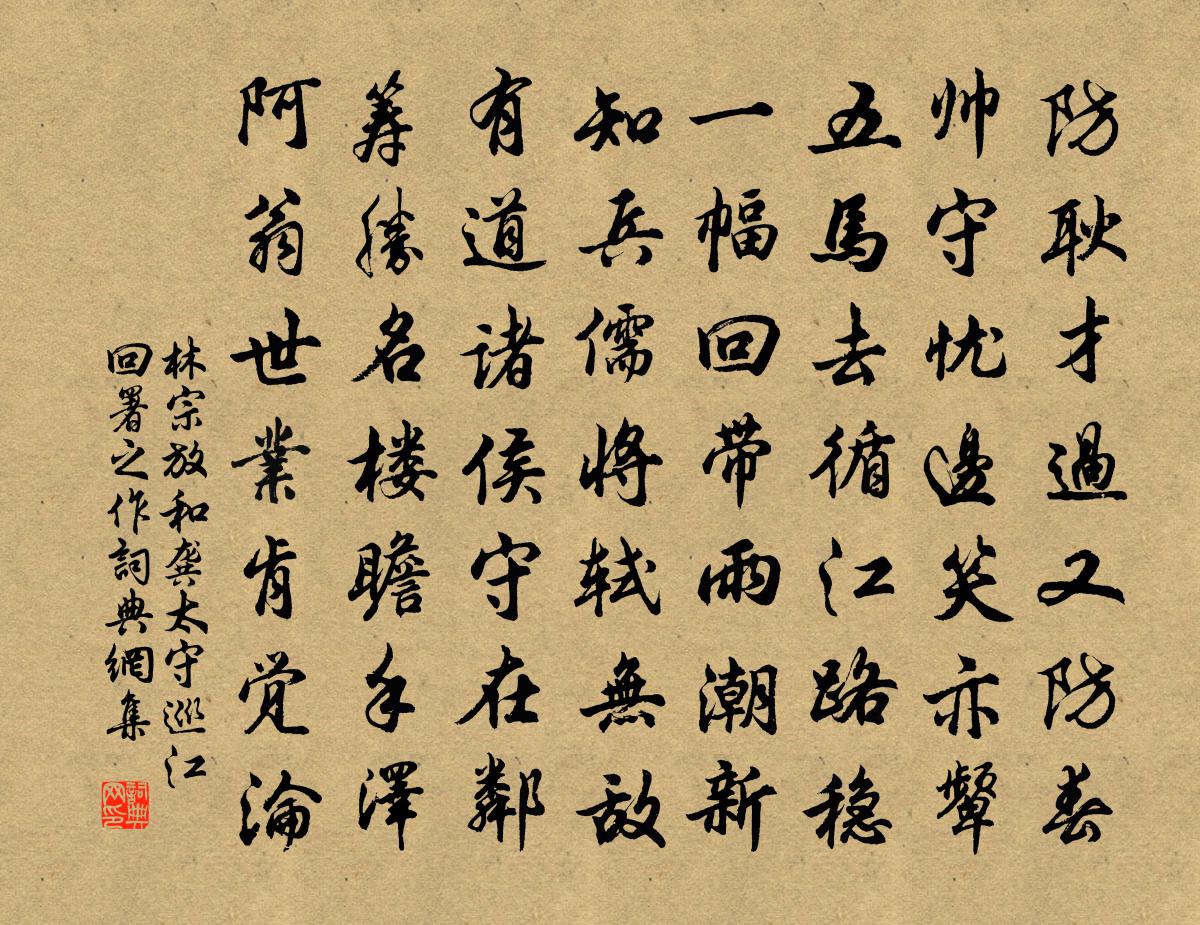 防耿才過又防春
帅守忧邊笑亦顰
五馬去循江路稳
一幅回带雨潮新
知兵儒將轼無敌
有道诸侯守在鄰
筹勝名楼瞻手澤
阿翁世業肯觉淪
林宗放和龚太守巡江
回署之作詞典網集
詞典
网印